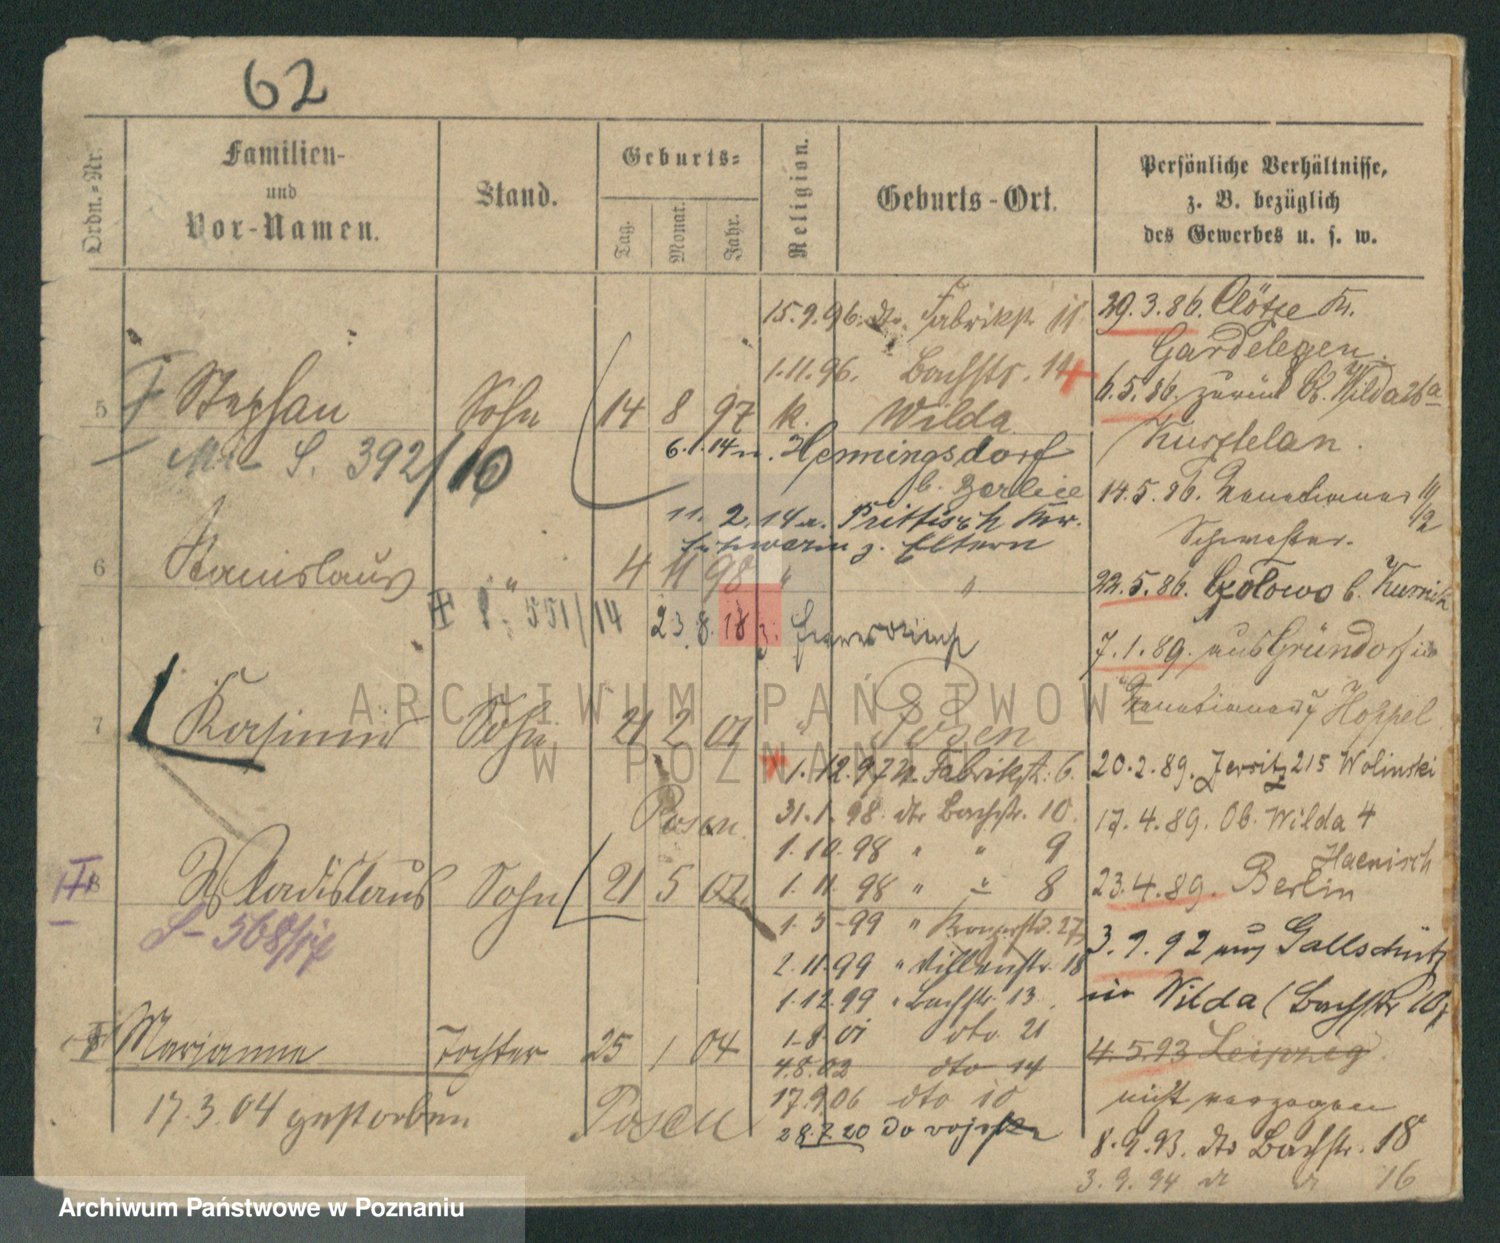 62
Ordn.-Nr.
Familien-
und
Vor-Namen.
Stand.
Geburts-
Tag.
Monat.
Jahr.
Religion.
Geburts-Ort.
Persönliche Verhältnisse,
z. B. bezüglich
des Gewerbes u. s. w.
15.9.96. dto. Fabrikstr. 11
1.11.96. Bachstr. 14
5 Stephan Sohn 14 8 97 k. Wilda
S. 392/10
6.1.14 n. Hennigsdorf
b. Berlin
11. 2. 14 n. Prittisch Kr.
Schwerin z. Eltern
6 Stanislaus " 4 11 98 " "
551/14 23.8.18 z.
7 Kasimir Sohn 21 2 01 " Posen
1.12.97 n. Fabrikstr. 6.
Posen 31.1.98 dto Bachstr. 10.
1.10.98 " " 9
8 Wladislaus Sohn 21 5 02 1.11.98 " " 8
S- 568/17
1.5-99 " 27
2.11.99 " Villenstr. 18
1.12.99 " Bachstr. 13.
1-8 01 dto. 21
Marianne Tochter 25 1 04
4.8.02 dto 14
17.3.04 gestorben Posen
17.9.06 dto 10
28.7.20 do wojska
29.3.86. Clötze Kr.
Gardelegen.
6.5.86. zurück Ob. Wilda 26a
14.5.86.
Schwester.
22.5.86. b. Kurnik
7.1.89. aus Gründorf in
Hoppel
20.2.89. Jersitz 215 Wolinski
17.4.89. Ob. Wilda 4
Haenisch
23.4.89. Berlin
3.9.92 aus Gallschütz
in Wilda (Bachstr 10)
4.5.93 Leipzig
nicht verzogen
8.9.93. dto Bachstr. 18
3.9.94 16
ARCHIWUM PAŃSTWOWE
W POZNANIU
Archiwum Państwowe w Poznaniu